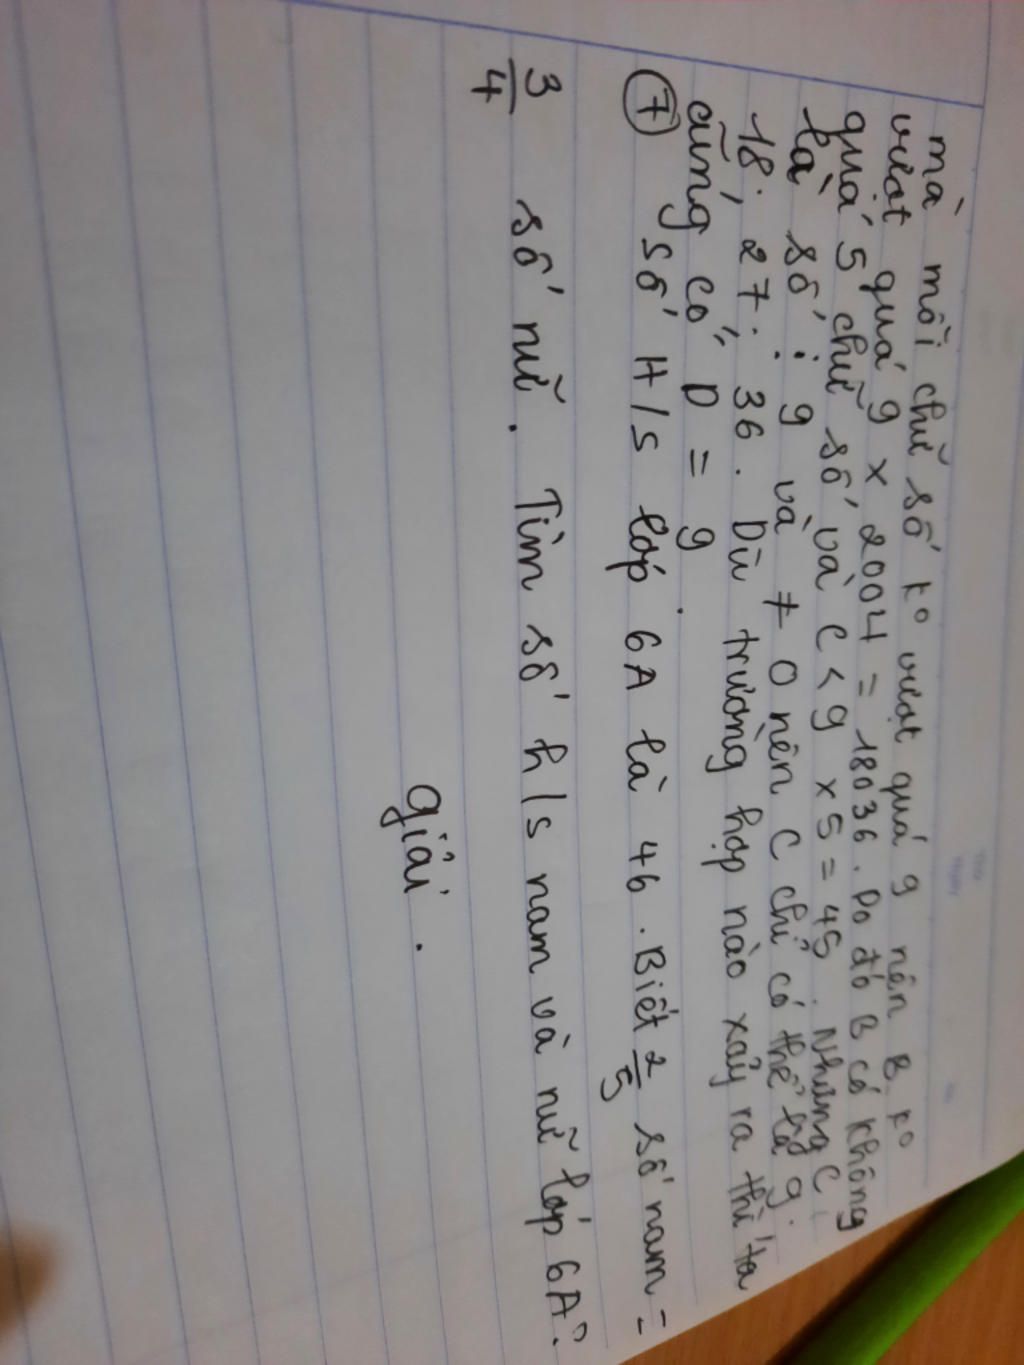 mà mỗi chữ số k° vượt quá 9 nên B k°
vượt quá 9 x 2004 = 18036. Do đó B có không
quá 5 chữ số và C < 9 x 5 = 45. Nhưng C
là số ⋮ 9 và ≠ 0 nên C chỉ có thể là 9.
18, 27, 36. Dù trường hợp nào xảy ra thì ta
cũng có D = 9.
⑦ Số H/s lớp 6A là 46. Biết 2/5 số nam =
3/4 số nữ. Tìm số h/s nam và nữ lớp 6A?
giải.